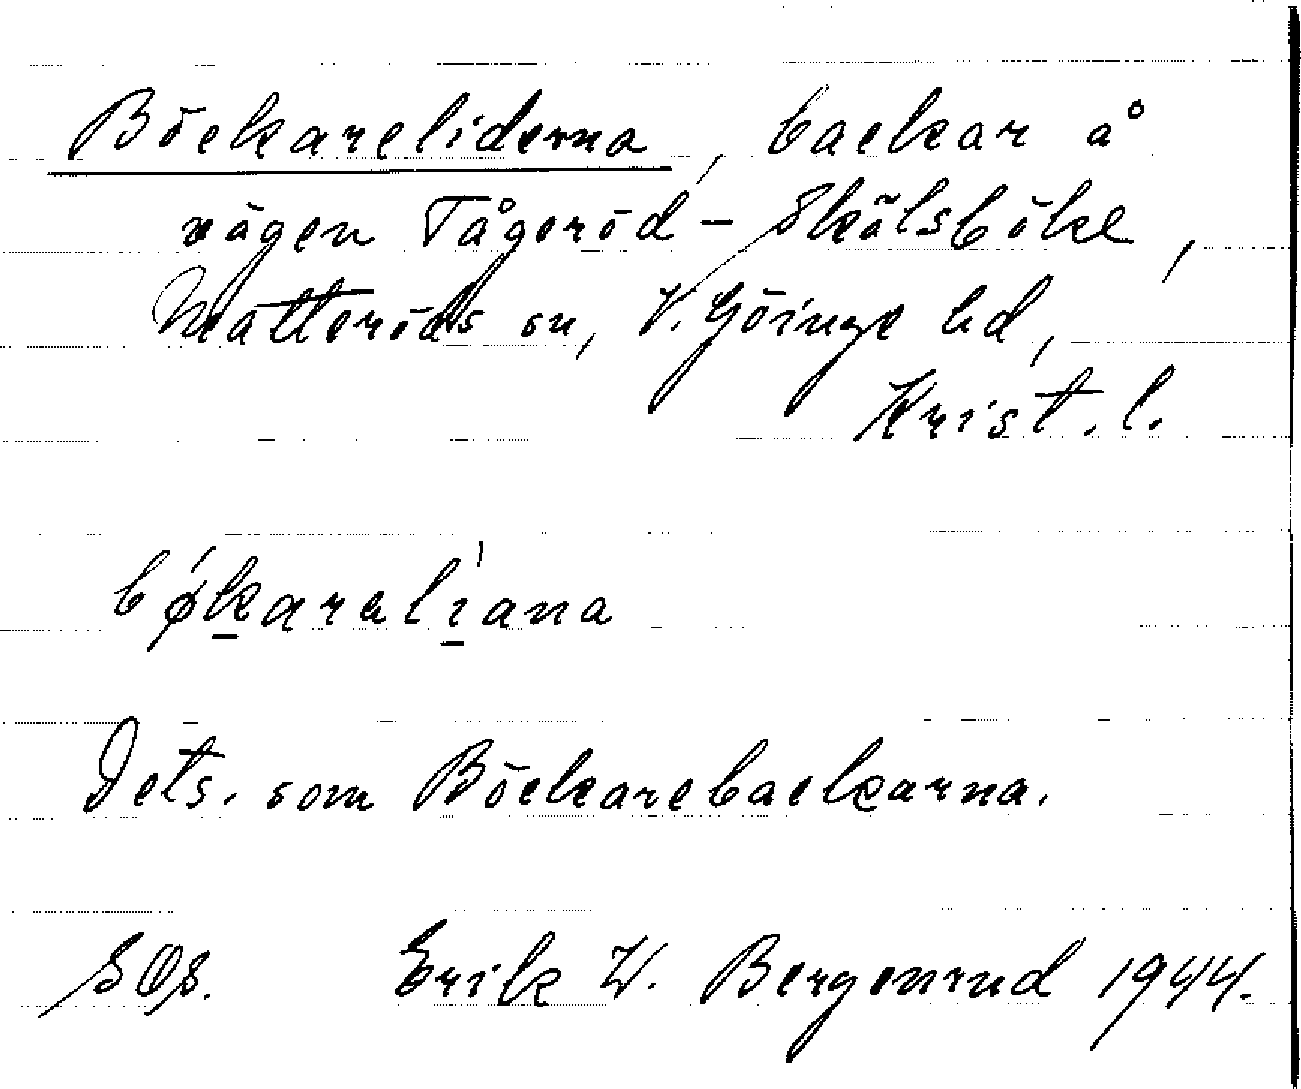 Böckareliderna, backar å
vägen Tågeröd – Skälsböke,
Matteröds sn, V. Göinge hd,
Krist. l.
bǿkaralíana
Dets. som Böckarebackarna.
Erik W. Bergenrud 1944.